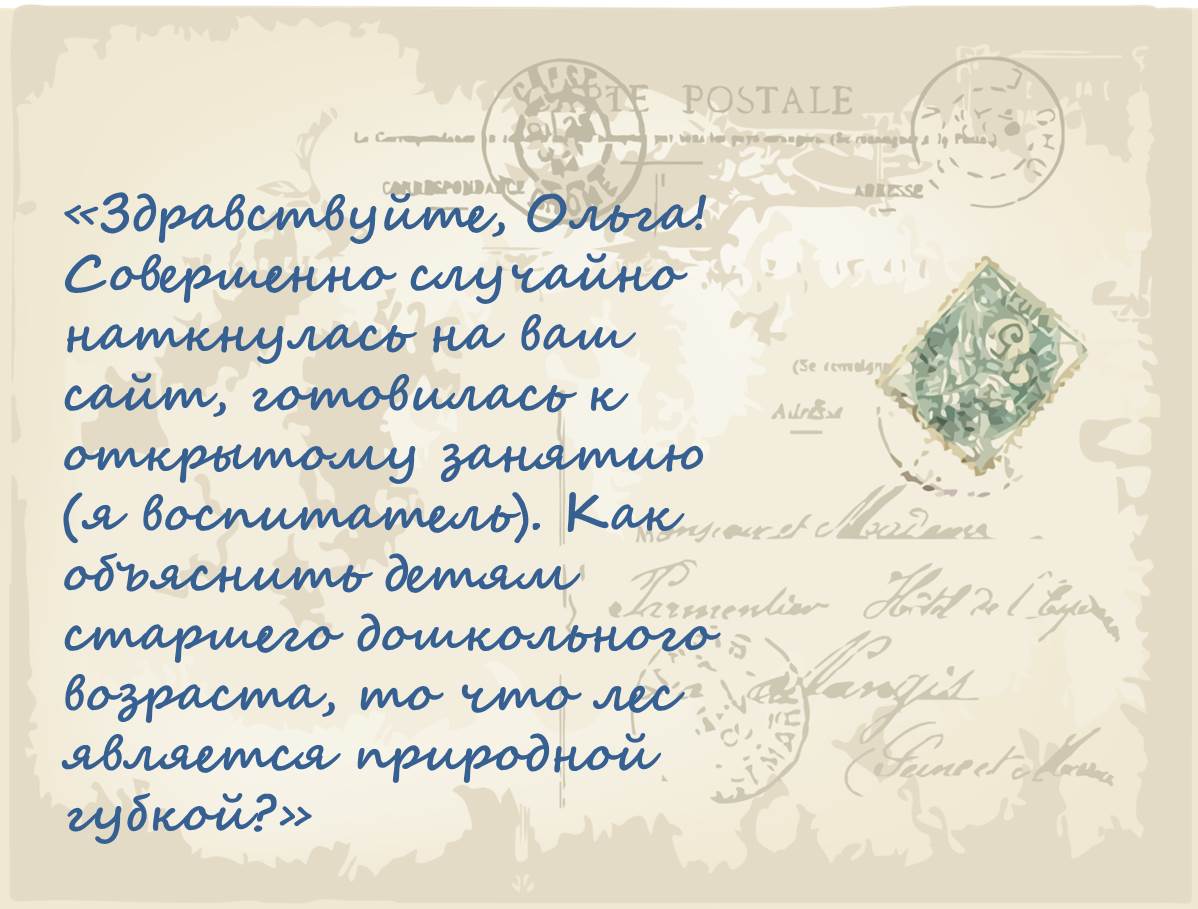 POSTALE
CORRESPONDANCE
ADRESSE
«Здравствуйте, Ольга!
Совершенно случайно
наткнулась на ваш
сайт, готовилась к
открытому занятию
(я воспитатель). Как
объяснить детям
старшего дошкольного
возраста, то что лес
является природной
губкой?»